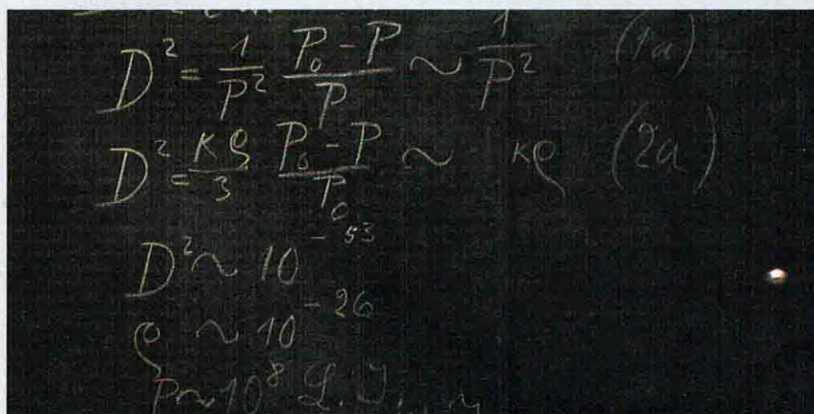 D² = 1/P² (P₀ - P)/P ~ 1/P² (1a)
D² = κρ/3 (P₀ - P)/P₀ ~ κρ (2a)
D² ~ 10⁻⁵³
ρ ~ 10⁻²⁶
P ~ 10⁸ L. J.